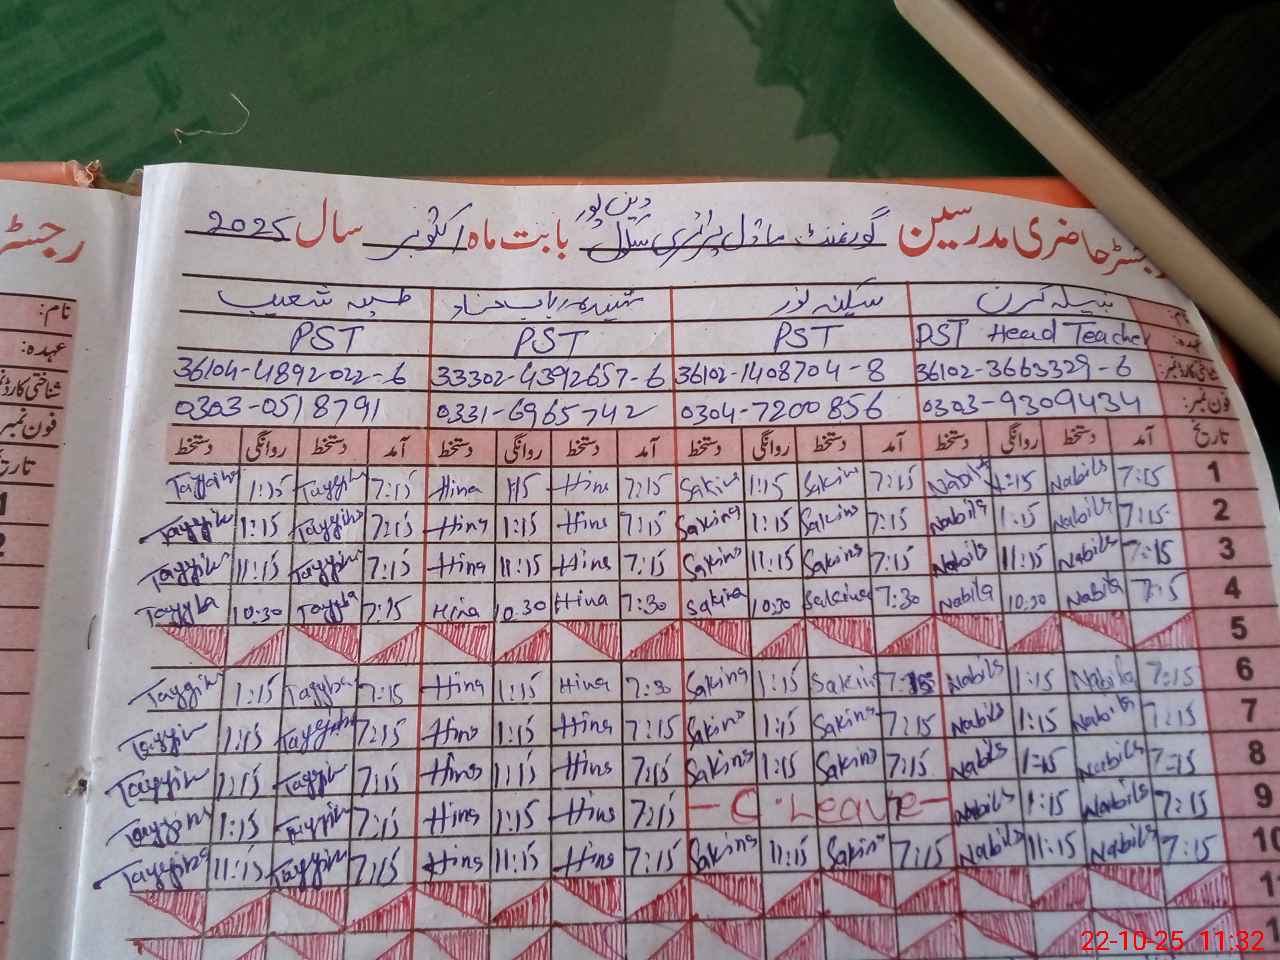 رجسٹر حاضری مدرسین گورنمنٹ ماڈل پرائمری سکول دین پور بابت ماہ اکتوبر سال 2025
نام: نبیلہ کرن سکینہ نور طیبہ شعیب
عہدہ: PST Head Teacher PST PST PST
شناختی کارڈ نمبر: 36102-3663329-6 36102-1408704-8 33302-4392657-6 36104-4892022-6
فون نمبر: 0303-9309434 0304-7200856 0331-6965742 0303-0518791
تاریخ آمد دستخط روانگی دستخط آمد دستخط روانگی دستخط آمد دستخط روانگی دستخط آمد دستخط روانگی دستخط
1 7:15 Nabila 1:15 Nabila 7:15 Sakina 1:15 Sakina 7:15 Hina 1:15 Hina 7:15 Tayyiba 1:15 Tayyiba
2 7:15 Nabila 1:15 Nabila 7:15 Sakina 1:15 Sakina 7:15 Hina 1:15 Hina 7:15 Tayyiba 1:15 Tayyiba
3 7:15 Nabila 11:15 Nabila 7:15 Sakina 11:15 Sakina 7:15 Hina 11:15 Hina 7:15 Tayyiba 11:15 Tayyiba
4 7:15 Nabila 10:30 Nabila 7:30 Sakina 10:30 Sakina 7:30 Hina 10:30 Hina 7:15 Tayyba 10:30 Tayyba
5
6 7:15 Nabila 1:15 Nabila 7:15 Sakina 1:15 Sakina 7:30 Hina 1:15 Hina 7:15 Tayyba 1:15 Tayyiba
7 7:15 Nabila 1:15 Nabila 7:15 Sakina 1:15 Sakina 7:15 Hina 1:15 Hina 7:15 Tayyiba 1:15 Tayyiba
8 7:15 Nabila 1:15 Nabila 7:15 Sakina 1:15 Sakina 7:15 Hina 1:15 Hina 7:15 Tayyiba 1:15 Tayyiba
9 7:15 Nabila 1:15 Nabila - C. Leave - 7:15 Hina 1:15 Hina 7:15 Tayyiba 1:15 Tayyiba
10 7:15 Nabila 11:15 Nabila 7:15 Sakina 11:15 Sakina 7:15 Hina 11:15 Hina 7:15 Tayyiba 11:15 Tayyiba
رجسٹر
نام:
عہدہ:
فون نمبر
1
2
22-10-25 11:32